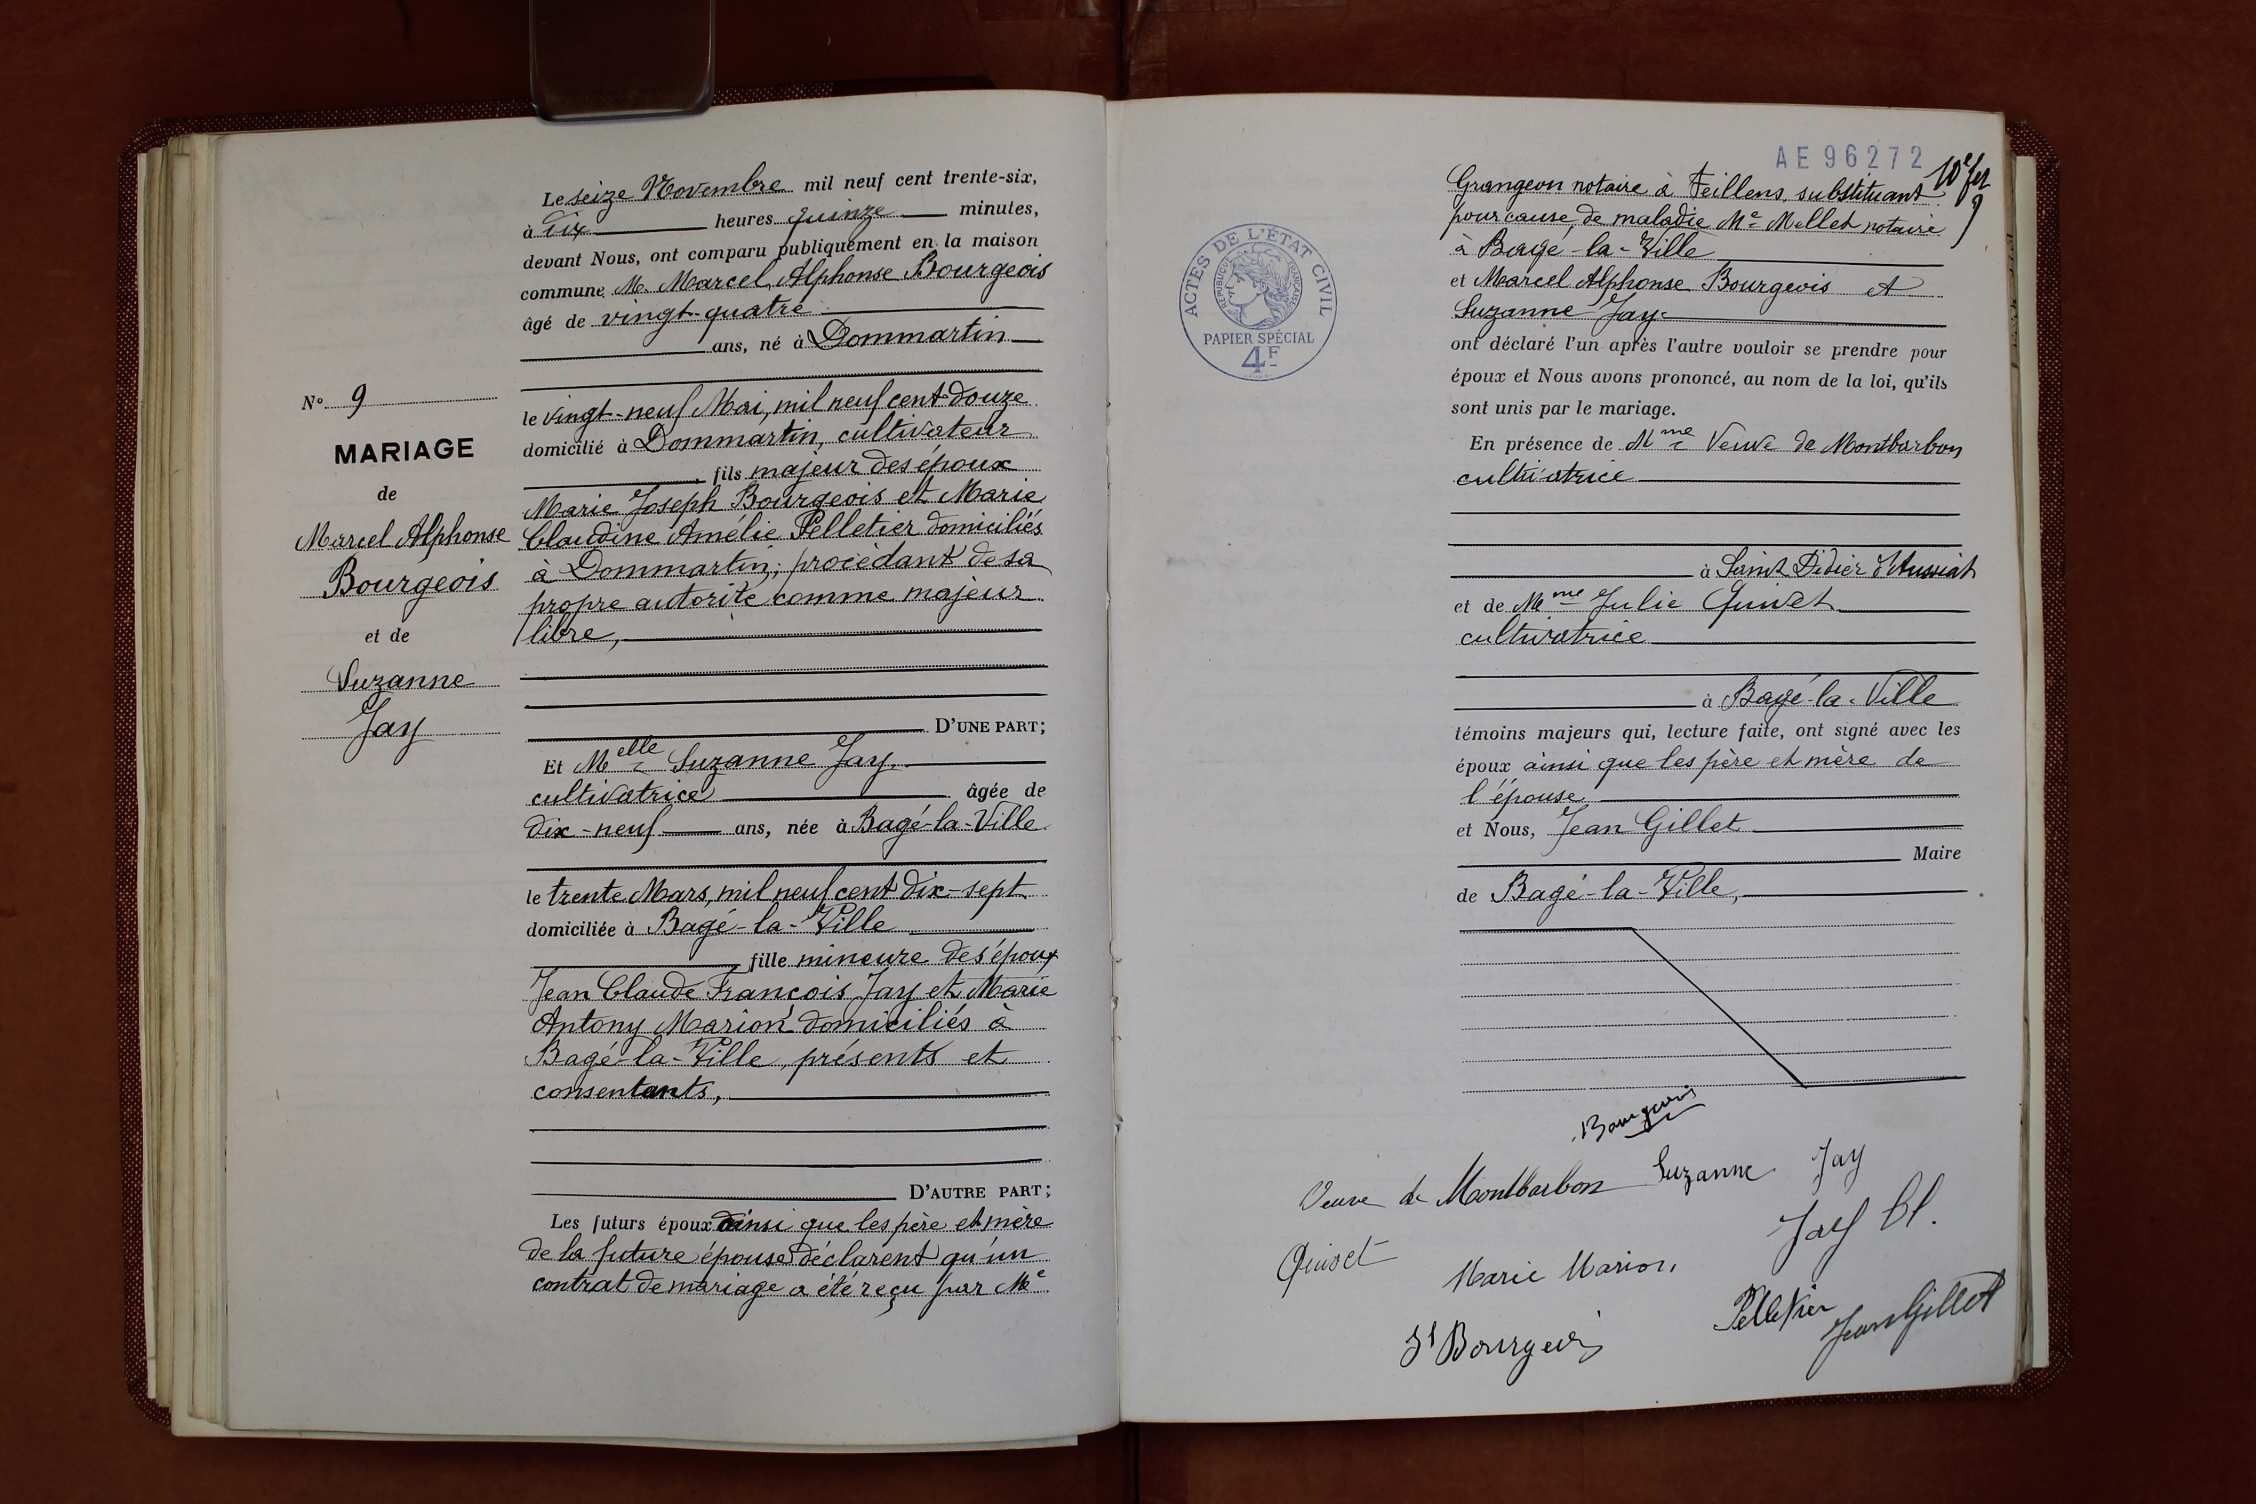 Le seize Novembre mil neuf cent trente-six,
à dix heures quinze minutes,
devant Nous, ont comparu publiquement en la maison
commune M. Marcel Alphonse Bourgeois
âgé de vingt-quatre
ans, né à Dommartin
le vingt-neuf Mai, mil neuf cent douze
domicilié à Dommartin, cultivateur
fils majeur des époux
Marie Joseph Bourgeois et Marie
Claudine Amélie Pelletier domiciliés
à Dommartin; procédant de sa
propre autorité comme majeur
libre,
D'UNE PART;
N° 9
MARIAGE
de
Marcel Alphonse
Bourgeois
et de
Suzanne
Jay
Et Melle Suzanne Jay,
cultivatrice âgée de
dix-neuf ans, née à Bagé-la-Ville
le trente Mars, mil neuf cent dix-sept
domiciliée à Bagé-la-Ville
fille mineure des époux
Jean Claude François Jay et Marie
Antony Marion domiciliés à
Bagé-la-Ville, présents et
consentants,
D'AUTRE PART;
Les futurs époux ainsi que les père et mère
de la future épouse déclarent qu'un
contrat de mariage a été reçu par Me
AE 96272
10e
Grangeon notaire à Feillens, substituant
pour cause de maladie Me Mellet notaire
à Bagé-la-Ville
et Marcel Alphonse Bourgeois et
Suzanne Jay
ont déclaré l'un après l'autre vouloir se prendre pour
époux et Nous avons prononcé, au nom de la loi, qu'ils
sont unis par le mariage.
En présence de Mme Veuve de Montbarbon
cultivatrice
à Saint Didier d'Aussiat
et de Mme Julie Quivet
cultivatrice
à Bagé-la-Ville
témoins majeurs qui, lecture faite, ont signé avec les
époux ainsi que les père et mère de
l'épouse
et Nous, Jean Gillet
Maire
de Bagé-la-Ville,
ACTES DE L'ÉTAT CIVIL
RÉPUBLIQUE FRANÇAISE
PAPIER SPÉCIAL
4F
Bourgeois
Veuve de Montbarbon Suzanne Jay
Jay Cl.
Quivet Marie Marion
Pelletier Jean Gillet
Bourgeois